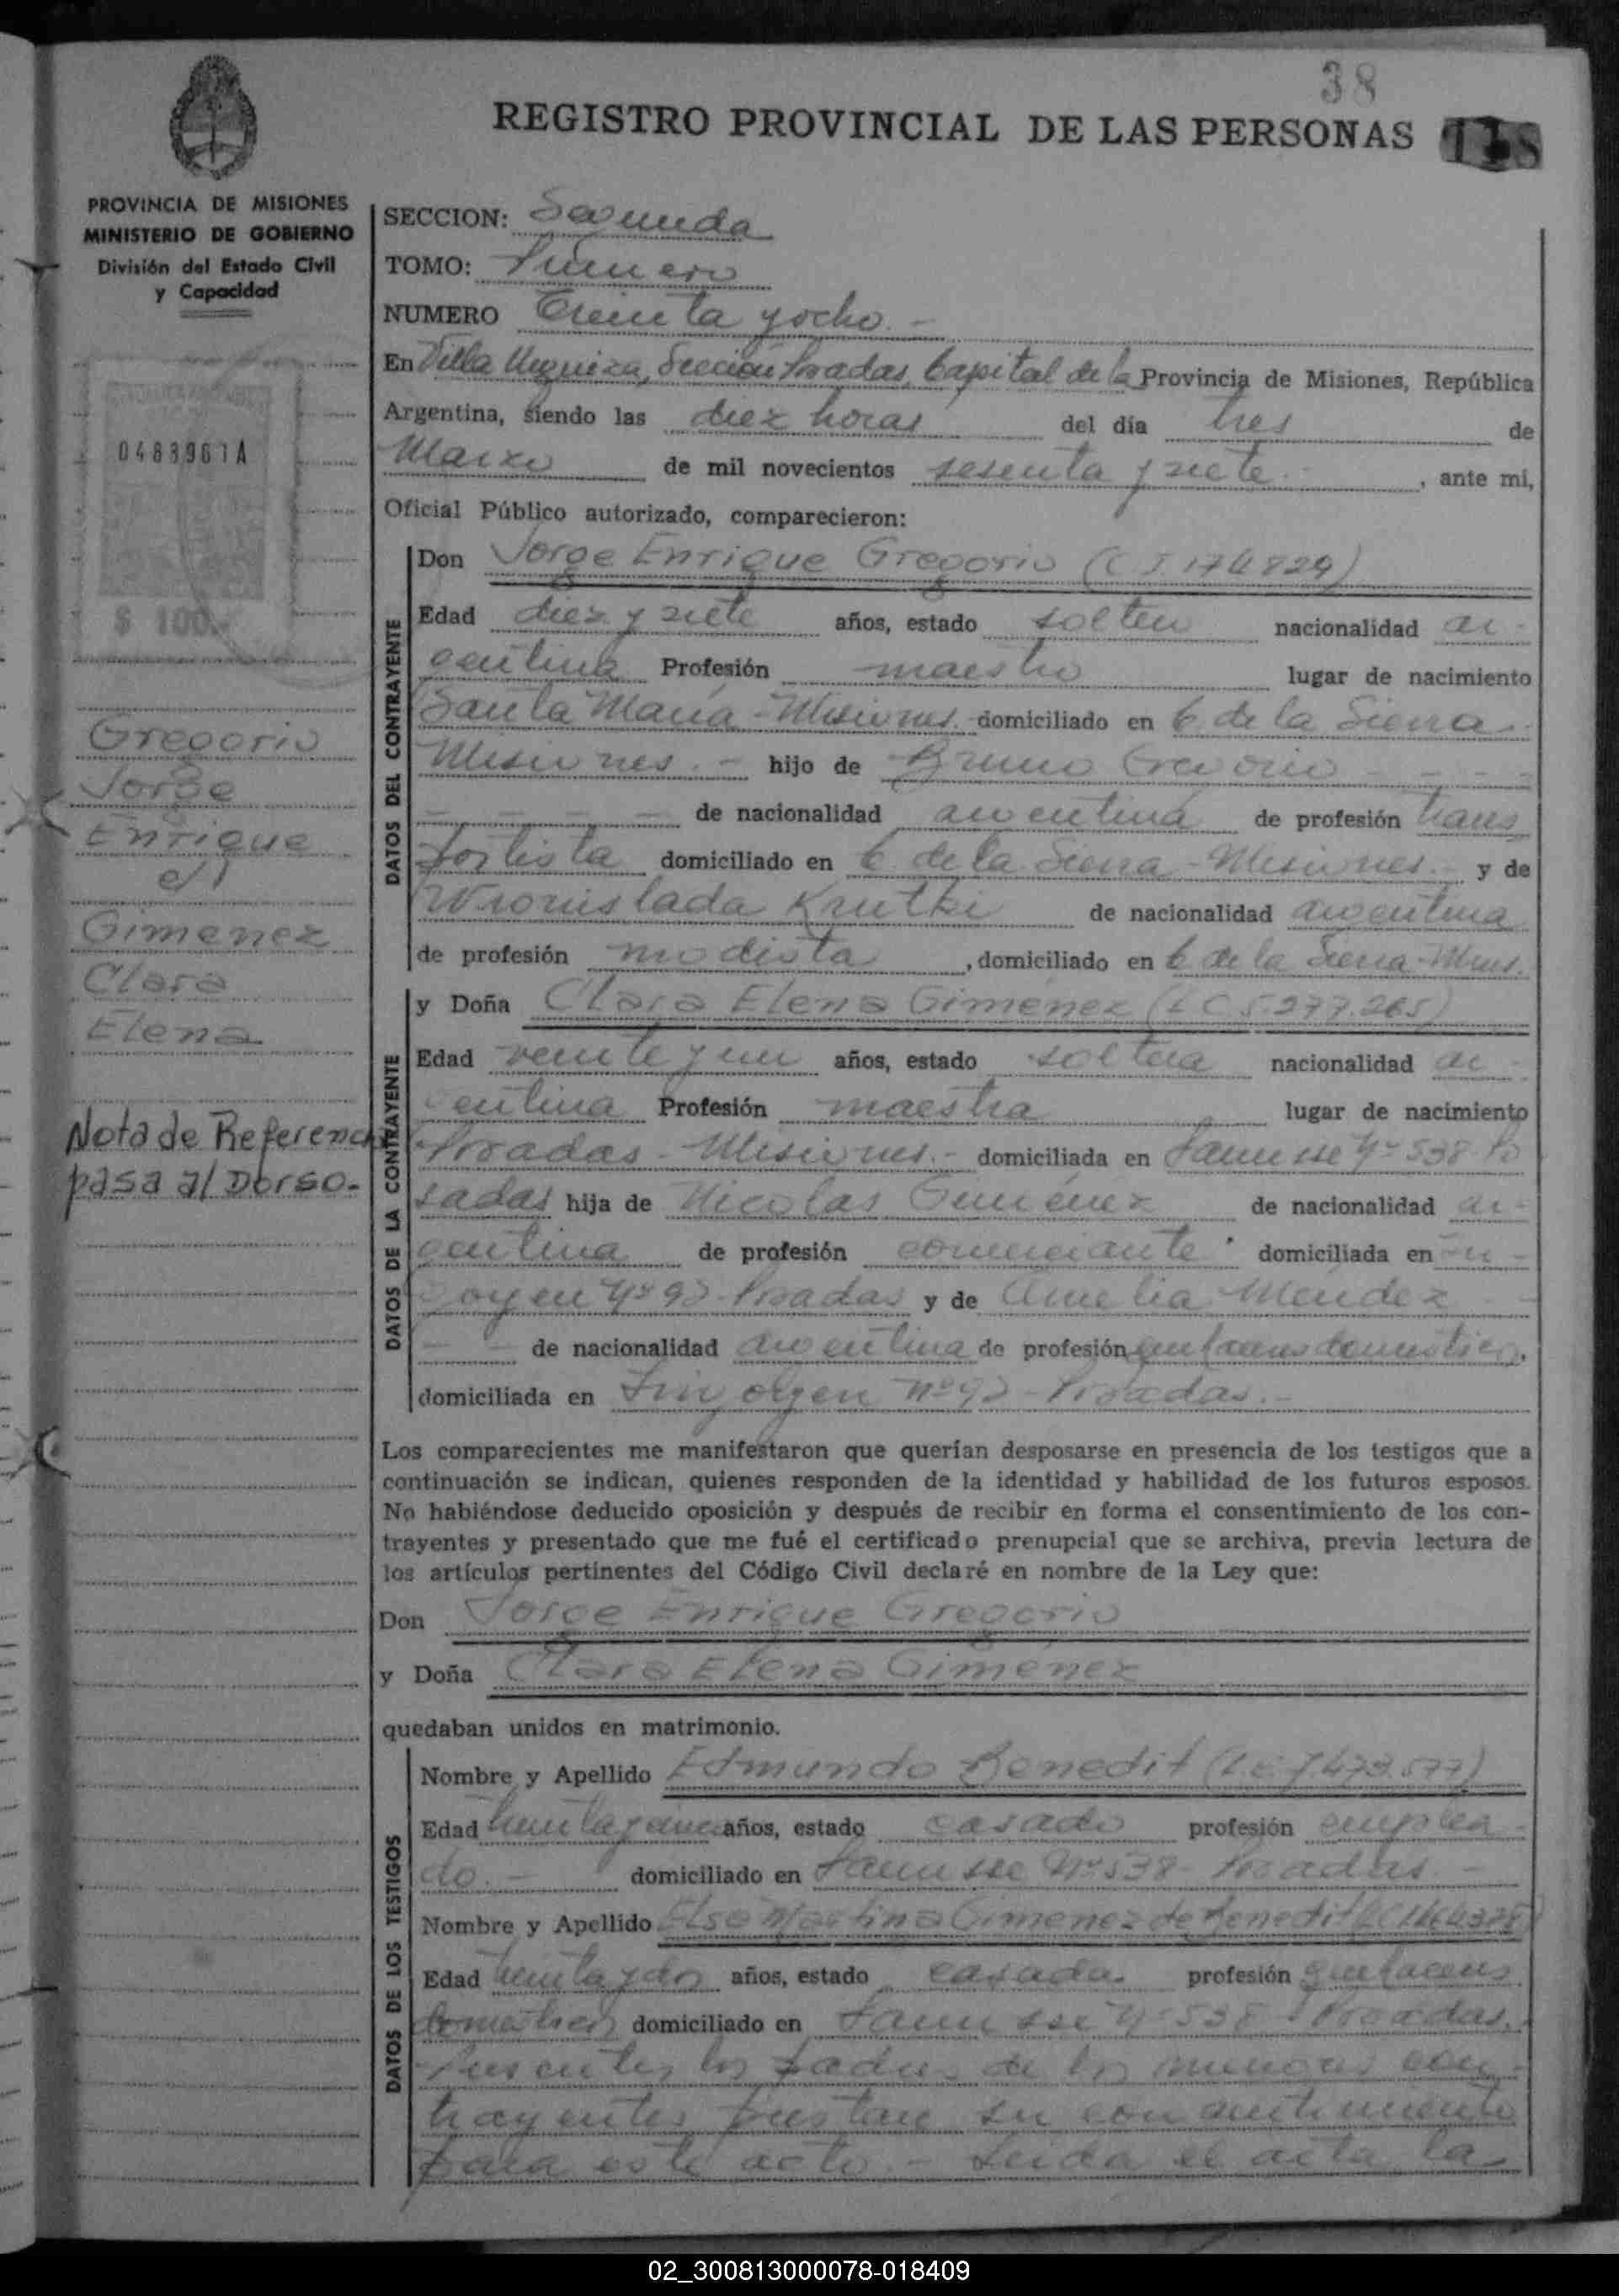 38
REGISTRO PROVINCIAL DE LAS PERSONAS 118
PROVINCIA DE MISIONES
MINISTERIO DE GOBIERNO
División del Estado Civil
y Capacidad
0483961A
$ 100.-
Gregorio
Jorge
Enrique
c/
Gimenez
Clara
Elena
Nota de Referencia
pasa al Dorso.-
SECCION: Segunda
TOMO: Primero
NUMERO Treinta y ocho.-
En Villa Urquiza, Sección Posadas, Capital de la Provincia de Misiones, República
Argentina, siendo las diez horas del día tres de
Marzo de mil novecientos sesenta y siete.- , ante mi,
Oficial Público autorizado, comparecieron:
DATOS DEL CONTRAYENTE
Don Jorge Enrique Gregorio (C.I. 174.829)
Edad diez y siete años, estado soltero nacionalidad ar-
gentina Profesión maestro lugar de nacimiento
Santa María - Misiones.- domiciliado en C. de la Sierra-
Misiones.- hijo de Bruno Gregorio - - - -
- - - - - de nacionalidad argentina de profesión trans
portista domiciliado en C. de la Sierra - Misiones.- y de
Wronislada Krutki de nacionalidad argentina
de profesión modista , domiciliado en C. de la Sierra-Mnes.
DATOS DE LA CONTRAYENTE
y Doña Clara Elena Gimenez (L C 5.277.265)
Edad veinte y un años, estado soltera nacionalidad ar-
gentina Profesión maestra lugar de nacimiento
Posadas - Misiones.- domiciliada en Nº 538 Po
sadas hija de Nicolas Gimenez de nacionalidad ar-
gentina de profesión comerciante domiciliada en
Nº 92 - Posadas y de Amelia Mendez - -
- - de nacionalidad argentina de profesión quehaceres domésticos,
domiciliada en nº 92 - Posadas.-
Los comparecientes me manifestaron que querían desposarse en presencia de los testigos que a
continuación se indican, quienes responden de la identidad y habilidad de los futuros esposos.
No habiéndose deducido oposición y después de recibir en forma el consentimiento de los con-
trayentes y presentado que me fué el certificado prenupcial que se archiva, previa lectura de
los artículos pertinentes del Código Civil declaré en nombre de la Ley que:
Don Jorge Enrique Gregorio
y Doña Clara Elena Gimenez
quedaban unidos en matrimonio.
DATOS DE LOS TESTIGOS
Nombre y Apellido Edmundo Benedit (L.E. 7.473.577)
Edad treinta y cinco años, estado casado profesión emplea-
do.- domiciliado en Nº 538 - Posadas -
Nombre y Apellido Elsa Martina Gimenez de Benedit
Edad treinta y dos años, estado casada profesión quehaceres
domésticos domiciliado en Nº 538 Posadas.-
Presentes los padres de los menores con-
trayentes prestan su consentimiento
para este acto.- Leida el acta la
02_300813000078-018409